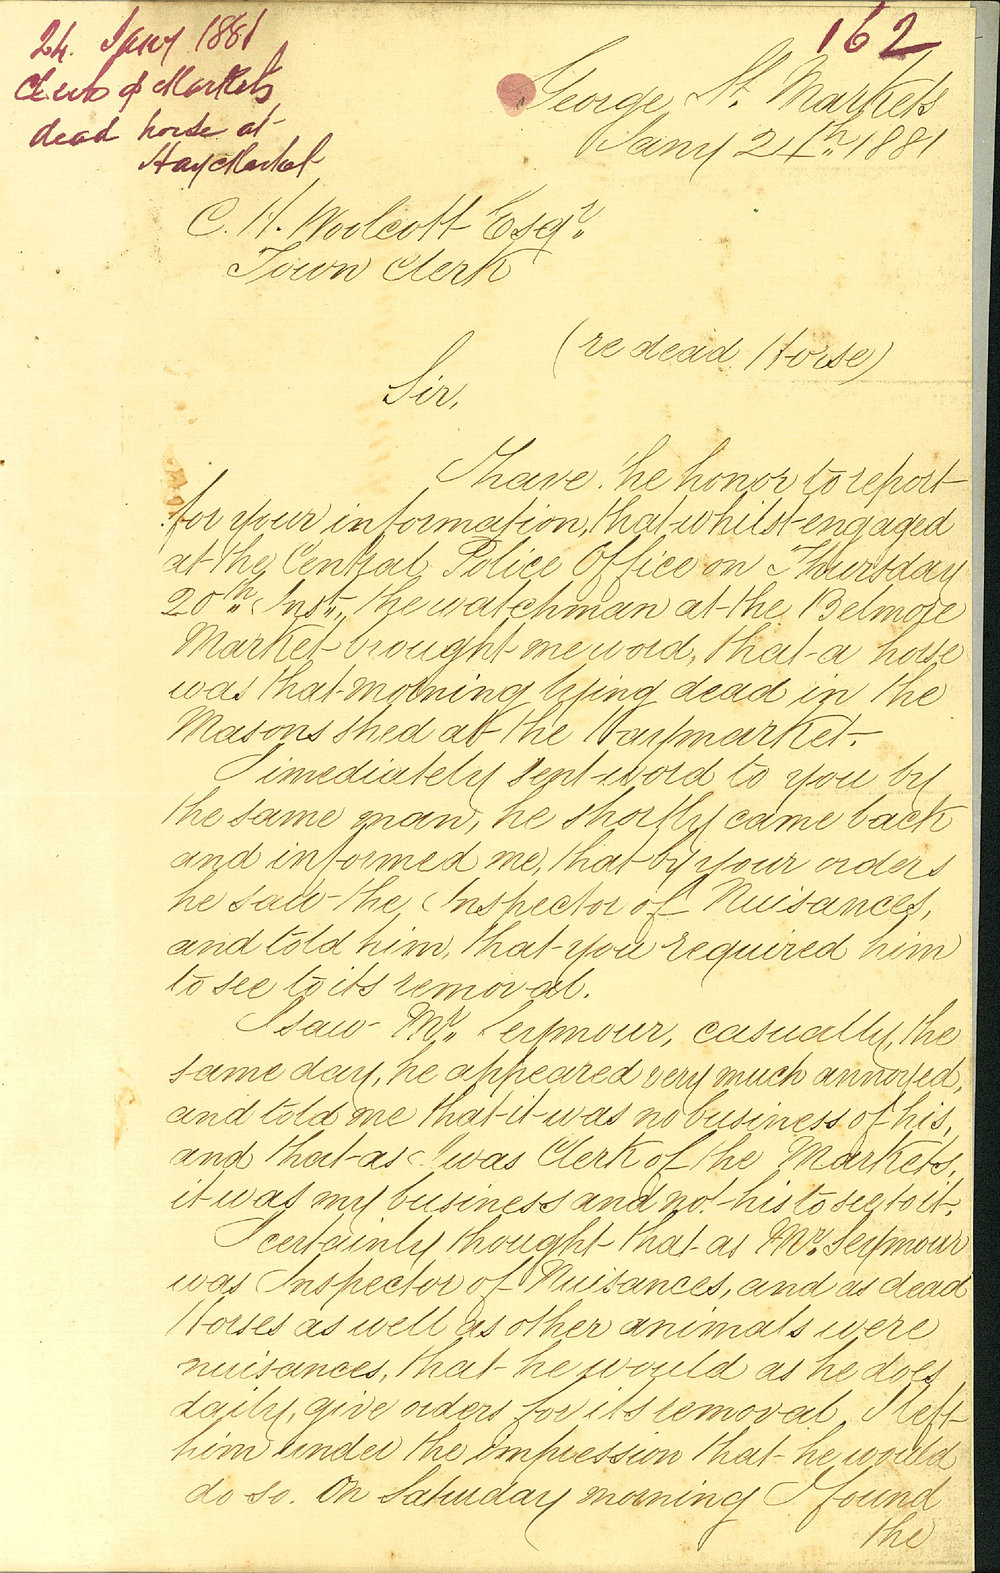 24. Jany 1881
Clerk of Markets
dead horse at
Haymarket
162
George St. Markets
Jany 24th 1881
C. H. Woolcott Esqr.
Town Clerk
(re dead Horse)
Sir,
I have the honor to report
for your information, that whilst engaged
at the Central Police Office on Thursday
20th Inst., the watchman at the Belmore
Market brought me word, that a horse
was that morning lying dead in the
Masons shed at the Haymarket.
I imediately sent word to you by
the same man, he shortly came back
and informed me, that by your orders
he saw the Inspector of Nuisances,
and told him, that you required him
to see to its removal.
I saw Mr. Seymour, casually, the
same day, he appeared very much annoyed,
and told me that it was no business of his,
and that as I was Clerk of the Markets,
it was my business and not his to see to it.
I certainly thought that as Mr. Seymour
was Inspector of Nuisances, and as dead
Horses as well as other animals were
nuisances, that he would as he does
daily, give orders for its removal. I left
him under the impression that he would
do so. On Saturday morning I found
the